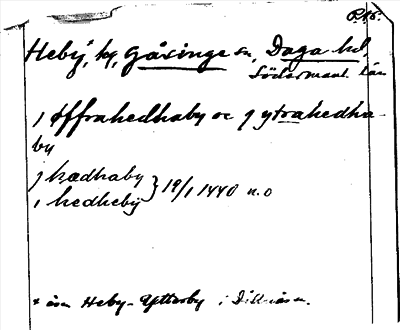 Heby, kg, Gåsinge sn, Daga hd
Södermanl. län
j Øffrahedhaby oc j ytrahedha-
by
j hædhaby
i hedheby } 19/1 1440 n.o
Heby-Ytterby i